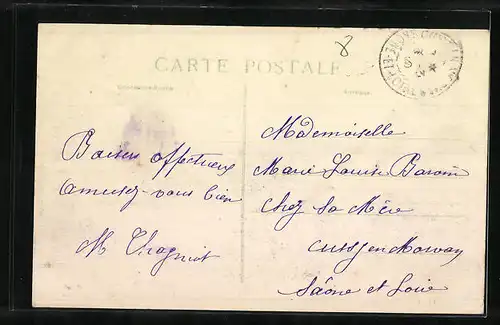 8
CARTE POSTALE
Baisers affectueux
amusez-vous bien
Mademoiselle
Marie Louise
chez sa Mère
Cussy en Morvan
Saône et Loire